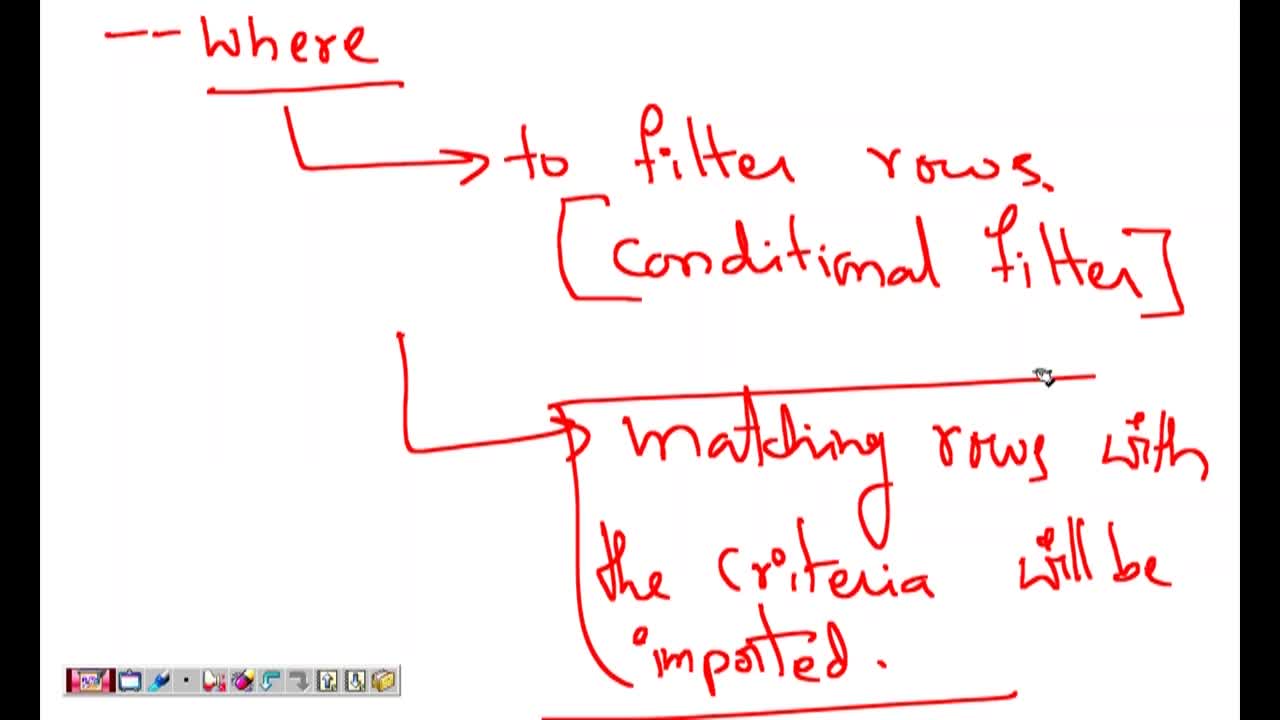 -- Where
to filter rows.
[conditional filter]
matching rows with
the criteria will be
imported.